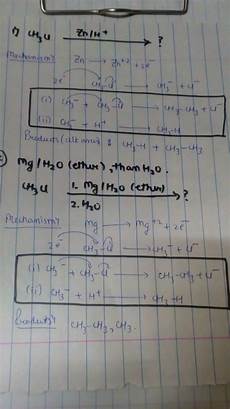 1) CH3Cl Zn/H+ → ?
Mechanism? Zn → Zn+2 + 2e-
2e- CH3-Cl → CH3- + Cl-
(i) CH3- + CH3-Cl → CH3-CH3 + Cl-
(ii) CH3- + H+ → CH3-H
Products (alkanes) CH3-H + CH3-CH3
Mg/H2O (ether), than H2O.
CH3Cl 1. Mg/H2O (ether) → ?
2. H2O
Mechanism? Mg → Mg+2 + 2e-
2e- CH3-Cl → CH3- + Cl-
(i) CH3- + CH3-Cl → CH3-CH3 + Cl-
(ii) CH3- + H+ → CH3-H
Products? CH3-CH3, CH3.